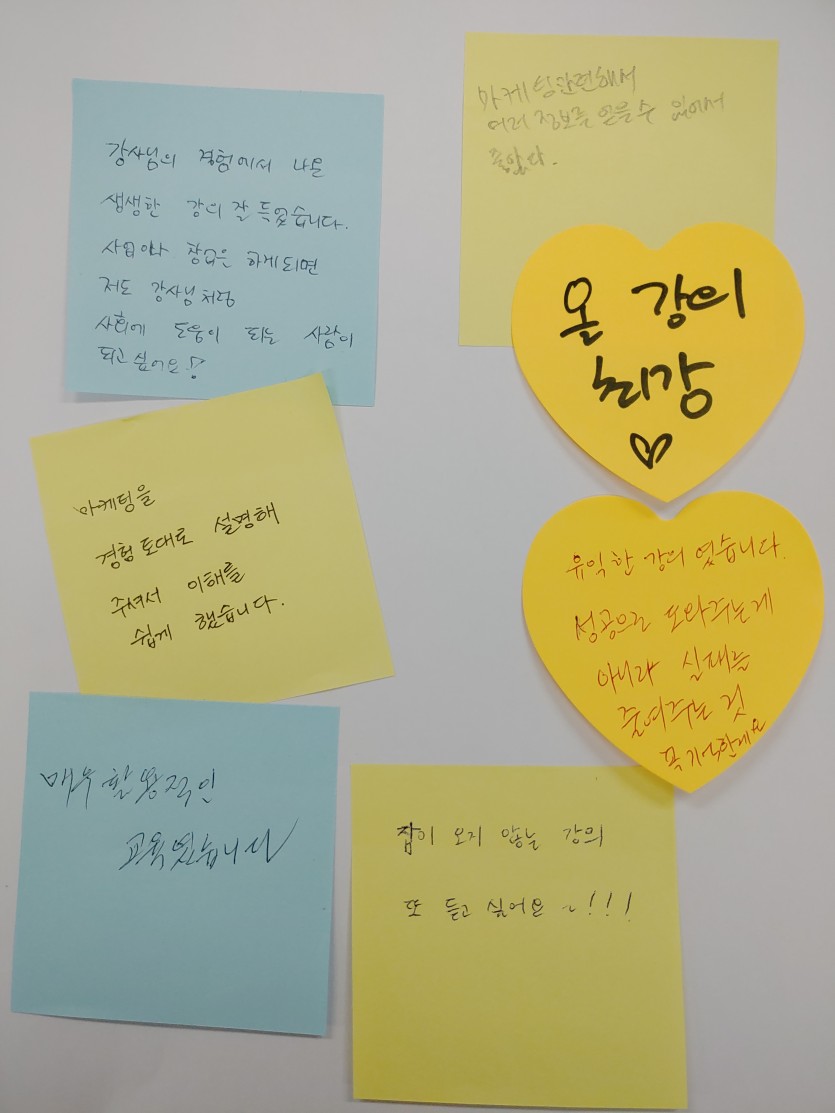 강사님의 경험에서 나온
생생한 강의 잘 들었습니다.
사업이나 창업을 하게되면
저도 강사님처럼
사회에 도움이 되는 사람이
되고싶어요!
마케팅관련해서
여러 정보를 얻을수 있어서
좋았다.
올 강의
최강
마케팅을
경험토대로 설명해
주셔서 이해를
쉽게 했습니다.
유익한 강의 였습니다.
성공으로 도와주는게
아니라 실패를
줄여주는 것
꼭 기억할게요
매우 활용적인
교육였습니다
잠이 오지 않는 강의
또 듣고 싶어요 ~!!!